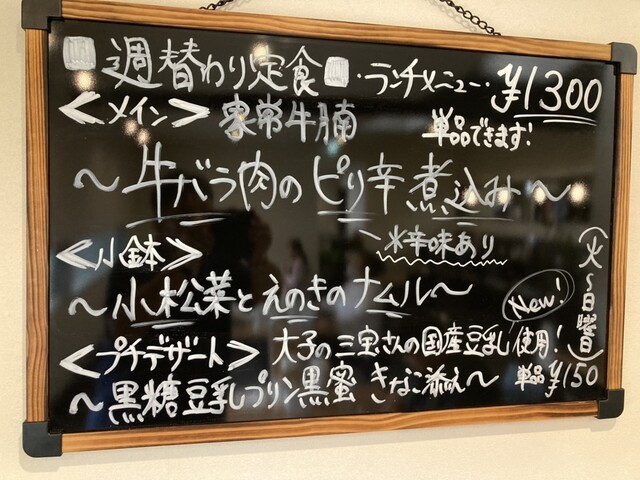 週替わり定食・ランチメニュー・ ¥1300
<メイン> 家常牛腩 単品できます!
〜牛バラ肉のピリ辛煮込み〜
※辛味あり
<小鉢>
〜小松菜とえのきのナムル〜
New!
(火〜日曜日)
<プチデザート> 大子の三宝さんの国産豆乳使用!
〜黒糖豆乳プリン黒蜜きなこ添え〜 単品¥150